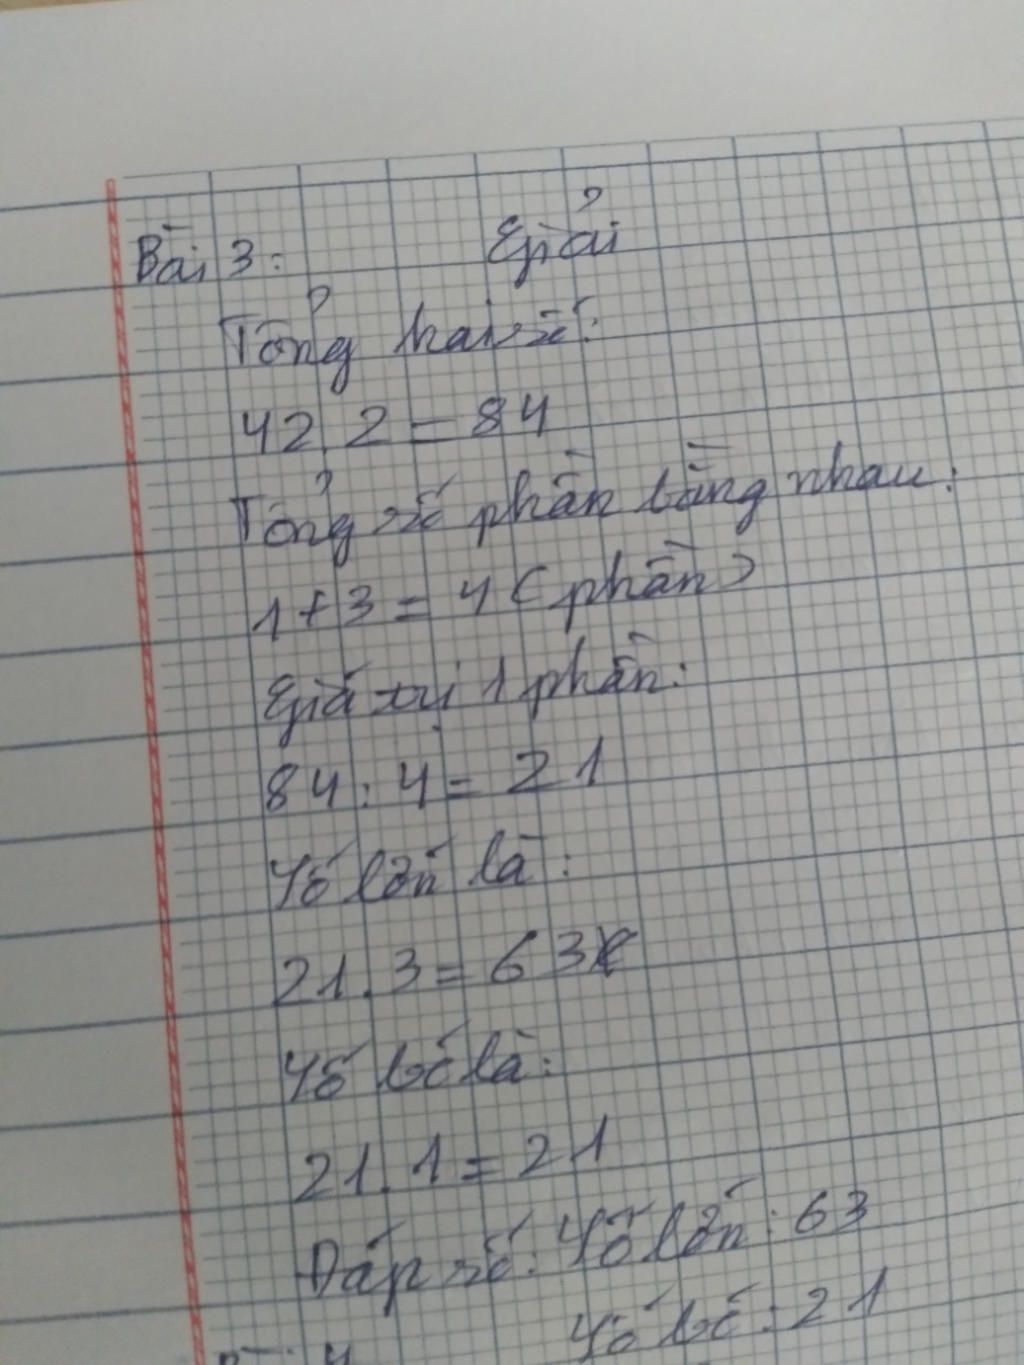 Bài 3: Giải
Tổng hai số:
42.2=84
Tổng số phần bằng nhau:
1+3=4(phần)
Giá trị 1 phần:
84:4=21
Số lớn là:
21.3=63
Số bé là:
21.1=21
Đáp số: Số lớn: 63
Số bé: 21